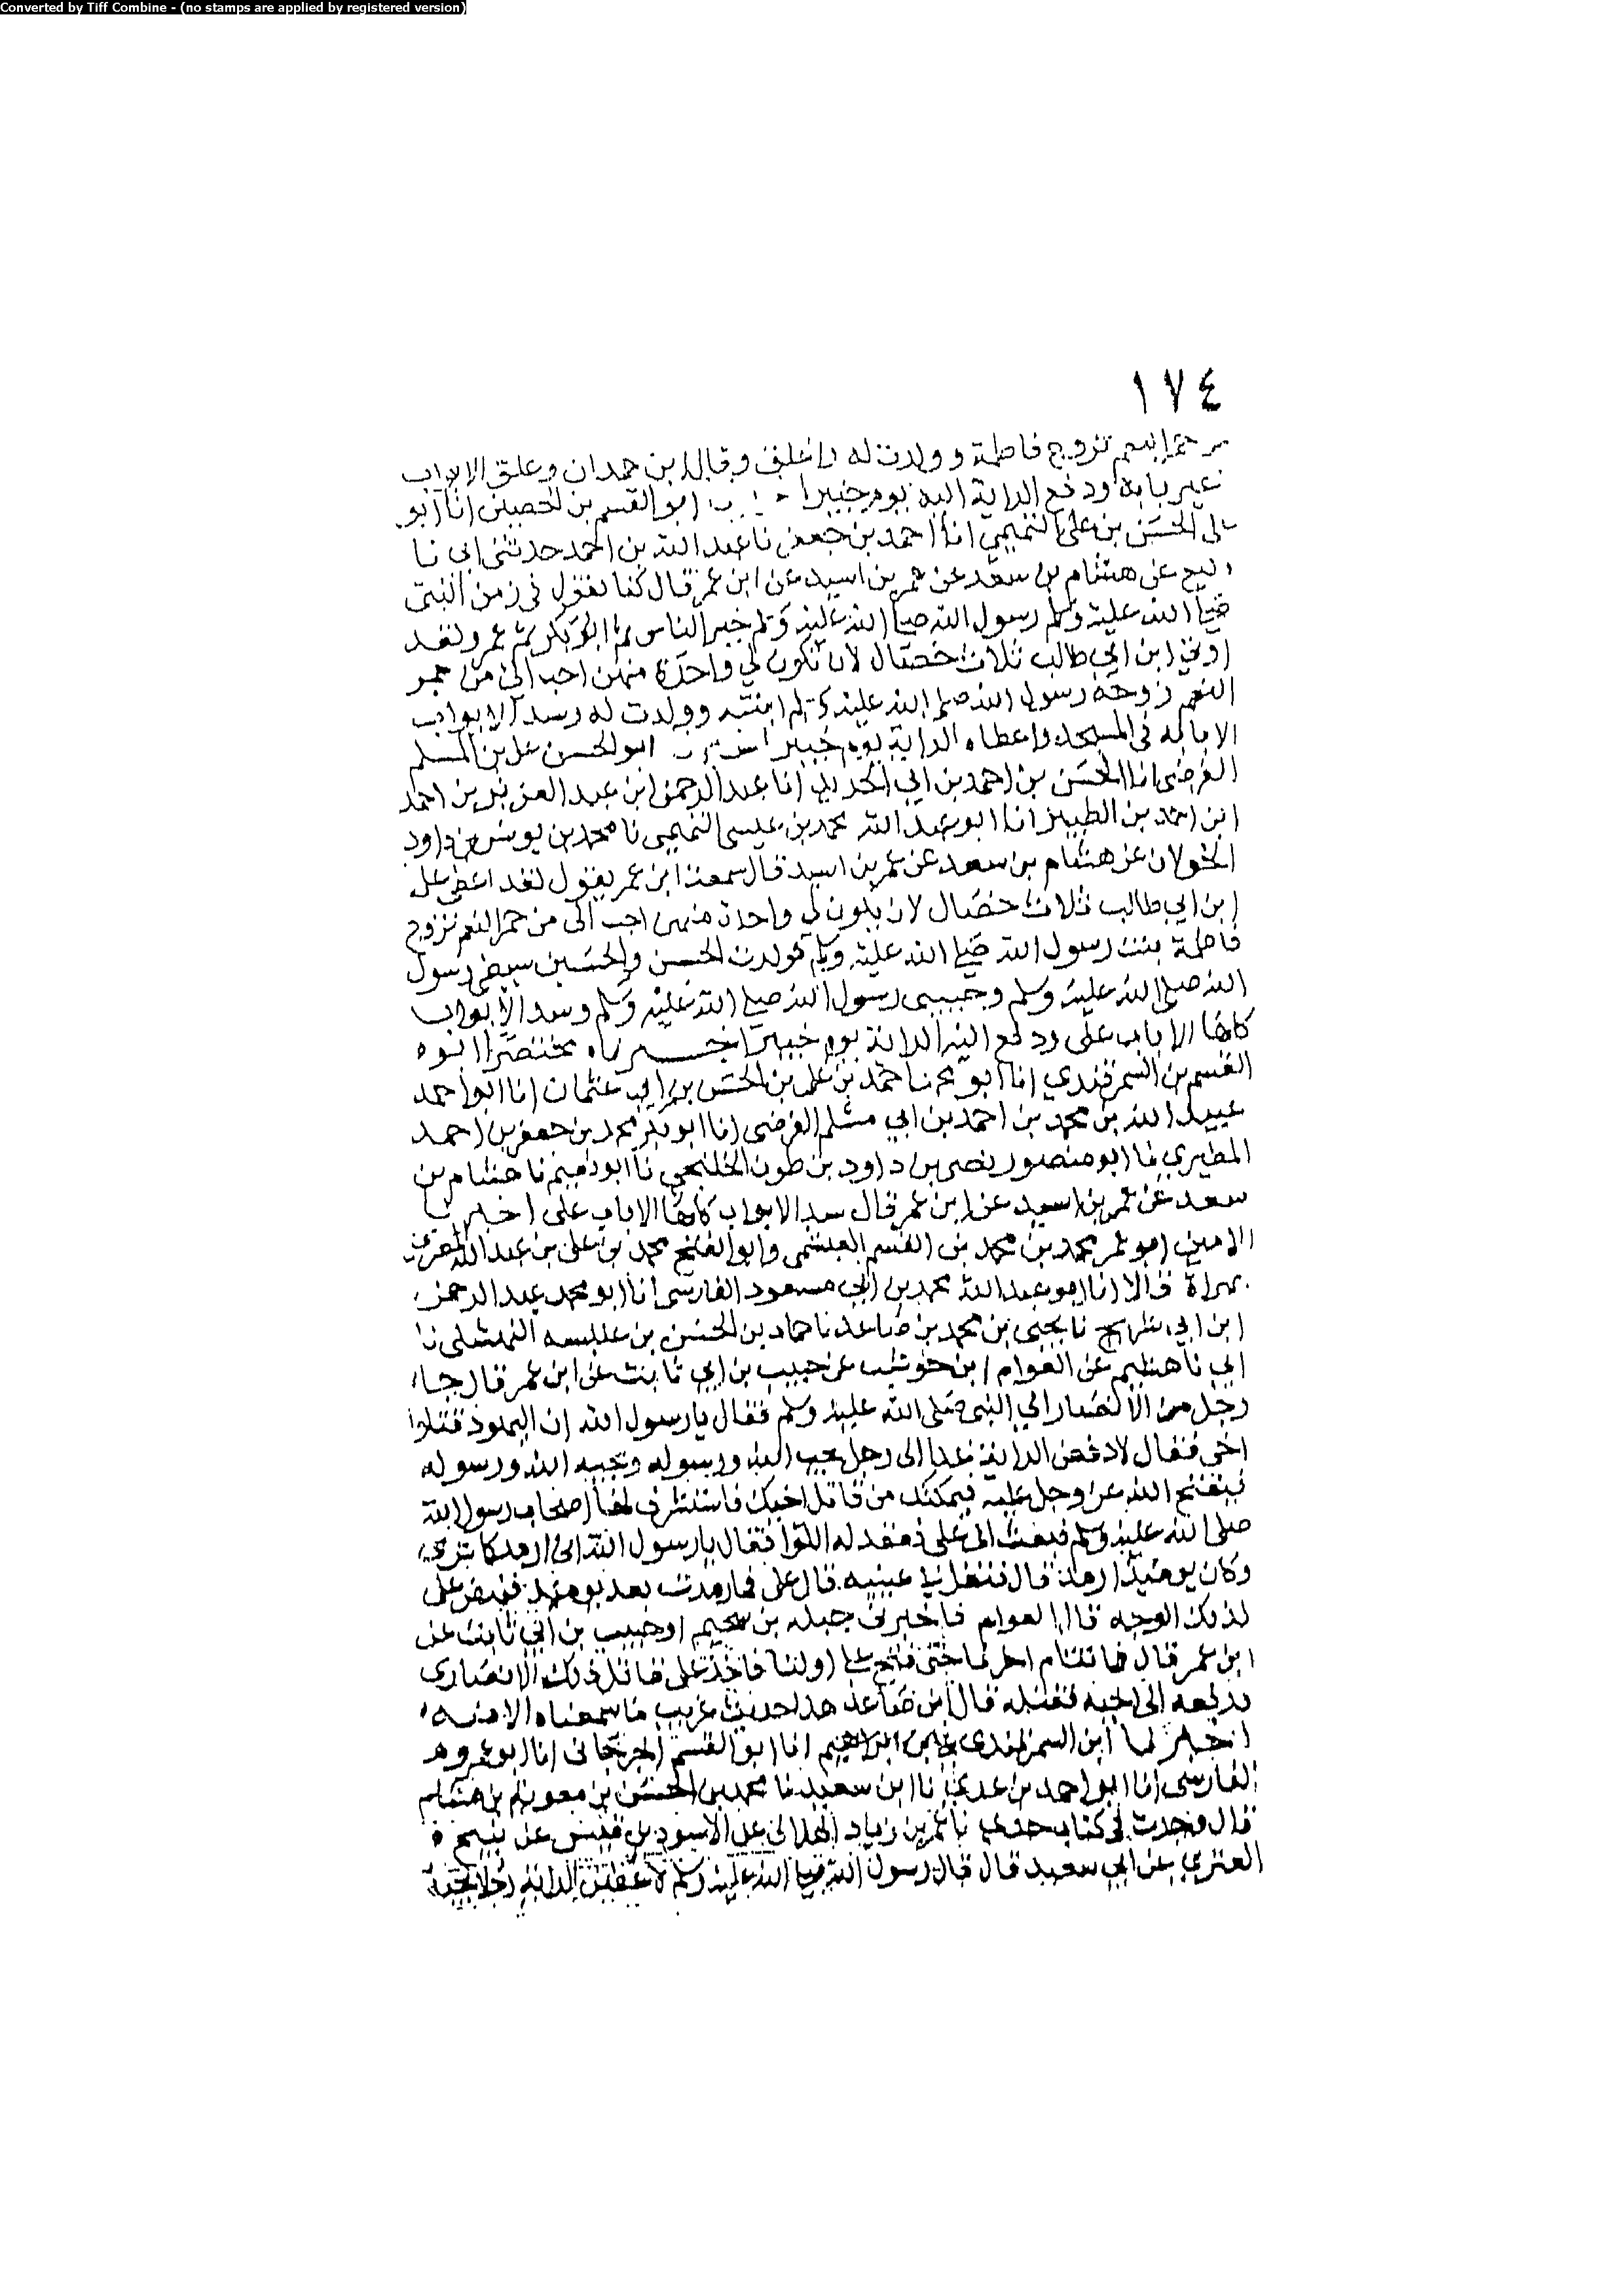 Converted by Tiff Combine - (no stamps are applied by registered version)
١٧٤
حمر النعم تزوج فاطمة وولدت له واغلق وقال ابن حمدان وعلق الابواب
غير بابه ودفع الراية اليه يوم خيبر ابو القسم بن الحصين انا ابو
على الحسن بن على التميمي انا احمد بن جعفر نا عبد الله بن احمد حدثنى ابى نا
وكيع عن هشام بن سعد عن عمر بن اسيد عن ابن عمر قال كنا نقول فى زمن النبى
صلى الله عليه وسلم رسول الله صلى الله عليه وسلم خير الناس ثم ابو بكر ثم عمر ولقد
اوتي ابن ابي طالب ثلاث خصال لان تكون لي واحدة منهن احب الى من حمر
النعم زوجه رسول الله صلى الله عليه وسلم ابنته وولدت له وسد الابواب
الا بابه فى المسجد واعطاه الراية يوم خيبر ابو الحسن على بن المسلم
الفرضى انا الحسن بن احمد بن ابي الحديد انا عبد الرحمن ابن عبد العزيز بن احمد
ابن احمد بن الطبيز انا ابو عبد الله محمد بن عيسى التميمى نا محمد بن يونس بن داود
عن هشام بن سعد عن عمر بن اسيد قال سمعت ابن عمر يقول لقد اعطى على
ابن ابي طالب ثلاث خصال لان يكون لي واحدة منهن احب الى من حمر النعم تزوج
فاطمة بنت رسول الله صلى الله عليه وسلم فولدت الحسن والحسين سبطى رسول
الله صلى الله عليه وسلم وحبيبى رسول الله صلى الله عليه وسلم وسد الابواب
كلها الا باب على ودفع اليه الراية يوم خيبر اخبرناه مختصرا ابوه
القسم بن السمرقندي انا ابو محمد احمد بن على بن الحسن بن ابي عثمان انا ابو احمد
عبيد الله بن محمد بن احمد بن ابي مسلم الفرضى انا ابو بكر محمد بن جعفر بن احمد
المطيري نا ابو منصور نصر بن داود بن طوق الخلنجي نا ابو نعيم نا هشام بن
سعد عن عمر بن اسيد عن ابن عمر قال سد الابواب كلها الا باب على اخبرنا
ابو محمد بن محمد بن القسم العبشمى وابو الفتح محمد بن على بن عبد الله المصرى
بهراة قالا انا ابو عبد الله محمد بن ابي مسعود الفارسى انا ابو محمد عبد الرحمن
ابن ابي شريح نا يحيى بن محمد بن صاعد نا حماد بن الحسن بن عنبسه النهشلى نا
ابي نا هشيم عن العوام ابن حوشب عن حبيب بن ابي ثابت عن ابن عمر قال جاء
رجل من الانصار الي النبى صلى الله عليه وسلم فقال يا رسول الله ان اليهود قتلوا
اخى فقال لادفعن الراية غدا الى رجل يحب الله ورسوله ويحبه الله ورسوله
فيفتح الله عز وجل عليه فيمكنك من قاتل اخيك فاستشرف لها اصحاب رسول الله
صلى الله عليه وسلم فبعث الى على فعقد له اللوا فقال يا رسول الله انى ارمد كما ترى
وكان يومئذ ارمد قال فتفل في عينيه قال على فما رمدت بعد يومئذ فمضى على
لذلك الوجه قال العوام فاخبرنى جبله بن سحيم او حبيب بن ابي ثابت عن
ابن عمر قال فما تتام اخرنا حتى فتح على اولنا فاخذ على قاتل ذلك الانصارى
فدفعه الى اخيه فقتله قال ابن صاعد هذا حديث غريب ما سمعناه الا منه
اخبرنا ابن السمرقندى انا ابو القسم الجرجانى انا ابو عمرو
الفارسى انا ابو احمد بن عدي نا ابن سعيد نا محمد بن الحسن بن معوية بن هشام
قال وجدت في كتاب جدي نا عمر بن زياد الهلالى عن الاسود بن قيس عن نبيح
العنزي عن ابي سعيد قال قال رسول الله صلى الله عليه وسلم لاعطين الراية رجلا يحبه